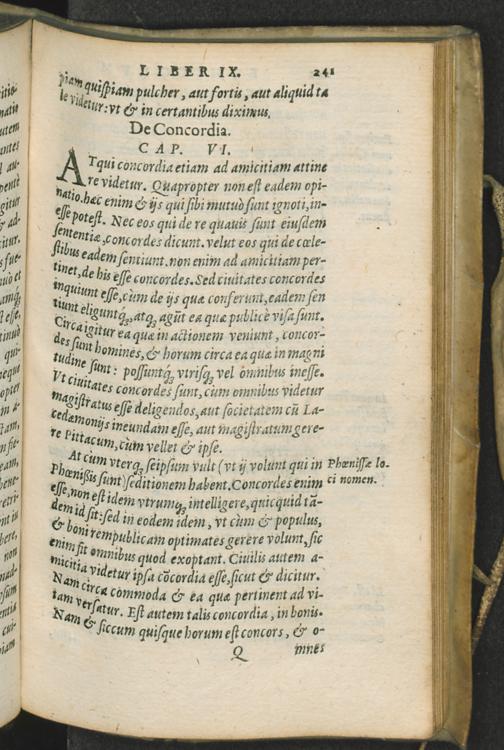 LIBER IX. 241
piam quispiam pulcher, aut fortis, aut aliquid ta
le videtur: vt & in certantibus diximus.
De Concordia.
CAP. VI.
ATqui concordia etiam ad amicitiam attine
re videtur. Quapropter non est eadem opi-
natio. hæc enim & ijs qui sibi mutuò sunt ignoti, in-
esse potest. Nec eos qui de re quauis sunt eiusdem
sententiæ, concordes dicunt. velut eos qui de cœle-
stibus eadem sentiunt. non enim ad amicitiam per-
tinet, de his esse concordes. Sed ciuitates concordes
inquiunt esse, cùm de ijs quæ conferunt, eadem sen
tiunt eliguntq́;, atq; agũt ea quæ publicè visa sunt.
Circa igitur ea quæ in actionem veniunt, concor-
des sunt homines, & horum circa ea quæ in magni
tudine sunt: possuntq́; vtrisq; vel omnibus inesse.
Vt ciuitates concordes sunt, cùm omnibus videtur
magistratus esse deligendos, aut societatem cũ La-
cedæmonijs ineundam esse, aut magistratum gere-
re Pittacum, cùm vellet & ipse.
At cum vterq; seipsum vult (vt ij volunt qui in
Phœnissis sunt) seditionem habent. Concordes enim
esse, non est idem vtrumq; intelligere, quicquid tã-
dem id sit: sed in eodem idem, vt cùm & populus,
& boni rempublicam optimates gerere volunt, sic
enim fit omnibus quod exoptant. Ciuilis autem a-
micitia videtur ipsa cõcordia esse, sicut & dicitur.
Nam circa commoda & ea quæ pertinent ad vi-
tam versatur. Est autem talis concordia, in bonis.
Nam & siccum quisque horum est concors, & o-
Q mnes
Phœnissæ lo-
ci nomen.